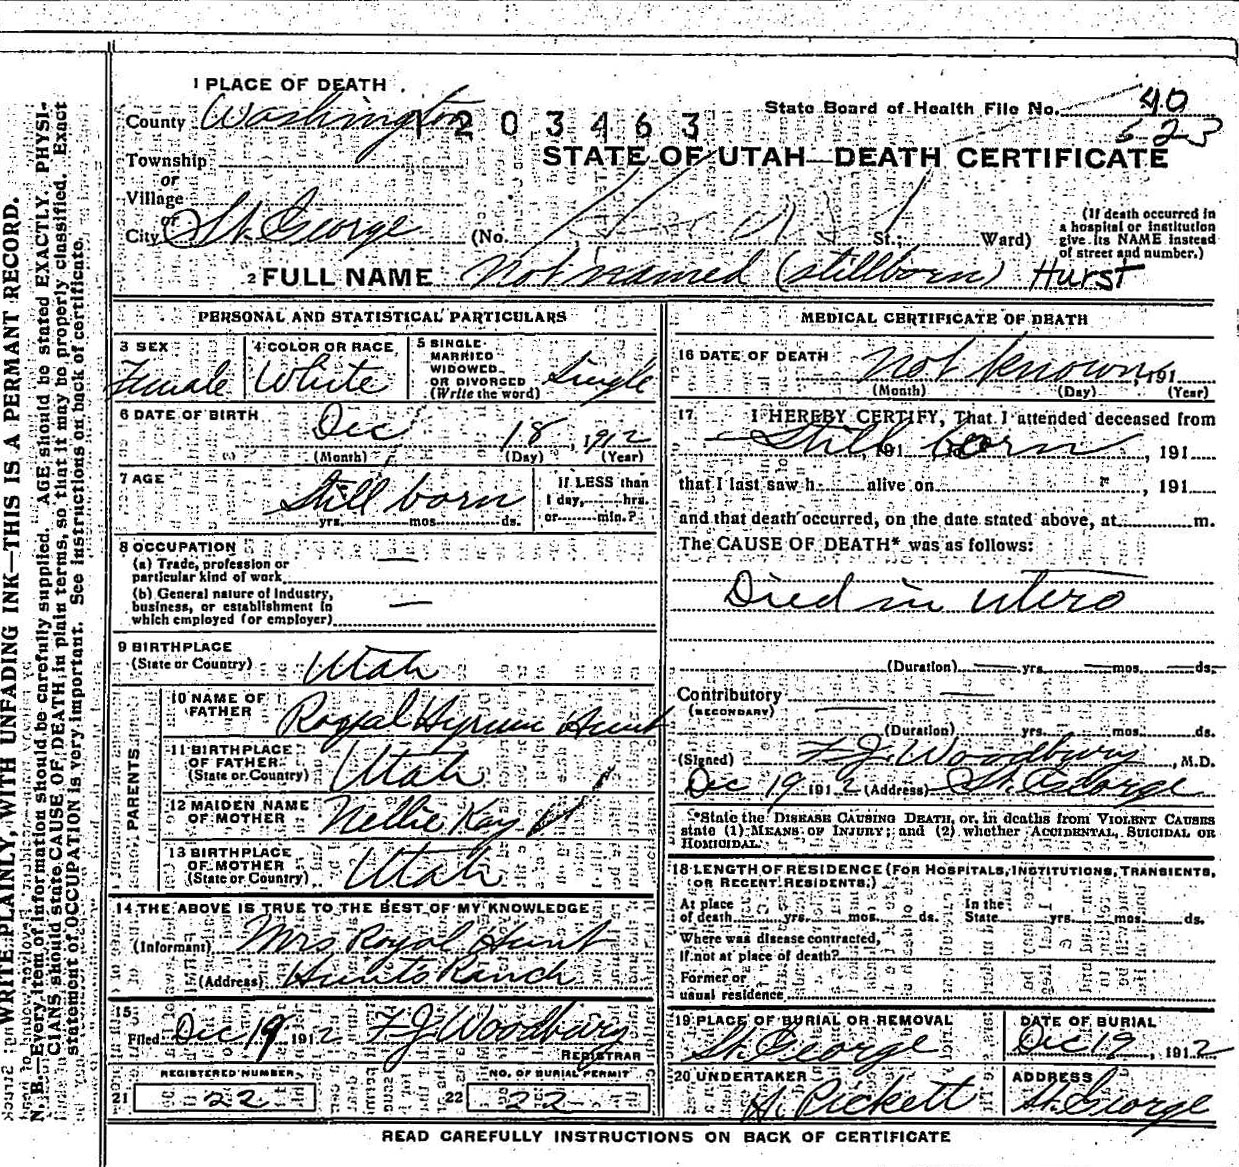 1 PLACE OF DEATH
County Washington
1203463
State Board of Health File No. 40
623
Township
or
Village
or
City St. George
STATE OF UTAH—DEATH CERTIFICATE
(No. St.; Ward)
(If death occurred in
a hospital or institution
give its NAME instead
of street and number.)
2 FULL NAME Not named (stillborn) Hurst
PERSONAL AND STATISTICAL PARTICULARS
3 SEX
Female
4 COLOR OR RACE
White
5 SINGLE
MARRIED
WIDOWED
OR DIVORCED
(Write the word)
Single
6 DATE OF BIRTH
Dec 18, 1912
(Month) (Day) (Year)
7 AGE
Still born
yrs. mos. ds.
If LESS than
1 day, hrs.
or min.?
8 OCCUPATION
(a) Trade, profession or
particular kind of work —
(b) General nature of industry,
business, or establishment in
which employed (or employer) —
9 BIRTHPLACE
(State or Country) Utah
PARENTS
10 NAME OF
FATHER
Royal Hyrum Hunt
11 BIRTHPLACE
OF FATHER
(State or Country)
Utah
12 MAIDEN NAME
OF MOTHER
Nellie Kay
13 BIRTHPLACE
OF MOTHER
(State or Country)
Utah
14 THE ABOVE IS TRUE TO THE BEST OF MY KNOWLEDGE
(Informant) Mrs Royal Hunt
(Address) Hunts Ranch
15
Filed Dec 19 1912 F J Woodbury
REGISTRAR
REGISTERED NUMBER
21 22
NO. OF BURIAL PERMIT
22 22
MEDICAL CERTIFICATE OF DEATH
16 DATE OF DEATH not known, 191
(Month) (Day) (Year)
17 I HEREBY CERTIFY, That I attended deceased from
Still born, 191 , 191
that I last saw h alive on , 191
and that death occurred, on the date stated above, at m.
The CAUSE OF DEATH* was as follows:
Died in utero
(Duration) yrs. mos. ds.
Contributory —
(SECONDARY)
(Duration) yrs. mos. ds.
(Signed) F J. Woodbury, M.D.
Dec 19 1912 (Address) St. George
*State the DISEASE CAUSING DEATH, or, in deaths from VIOLENT CAUSES
state (1) MEANS OF INJURY; and (2) whether ACCIDENTAL, SUICIDAL OR
HOMICIDAL.
18 LENGTH OF RESIDENCE (FOR HOSPITALS, INSTITUTIONS, TRANSIENTS,
OR RECENT RESIDENTS.)
At place
of death yrs. mos. ds.
In the
State yrs. mos. ds.
Where was disease contracted,
If not at place of death?
Former or
usual residence
19 PLACE OF BURIAL OR REMOVAL
St. George
DATE OF BURIAL
Dec 19, 1912
20 UNDERTAKER
H. Pickett
ADDRESS
St. George
READ CAREFULLY INSTRUCTIONS ON BACK OF CERTIFICATE
WRITE PLAINLY, WITH UNFADING INK—THIS IS A PERMANT RECORD.
N. B.—Every item of information should be carefully supplied. AGE should be stated EXACTLY. PHYSI-
CIANS should state CAUSE OF DEATH in plain terms, so that it may be properly classified. Exact
statement of OCCUPATION is very important. See instructions on back of certificate.